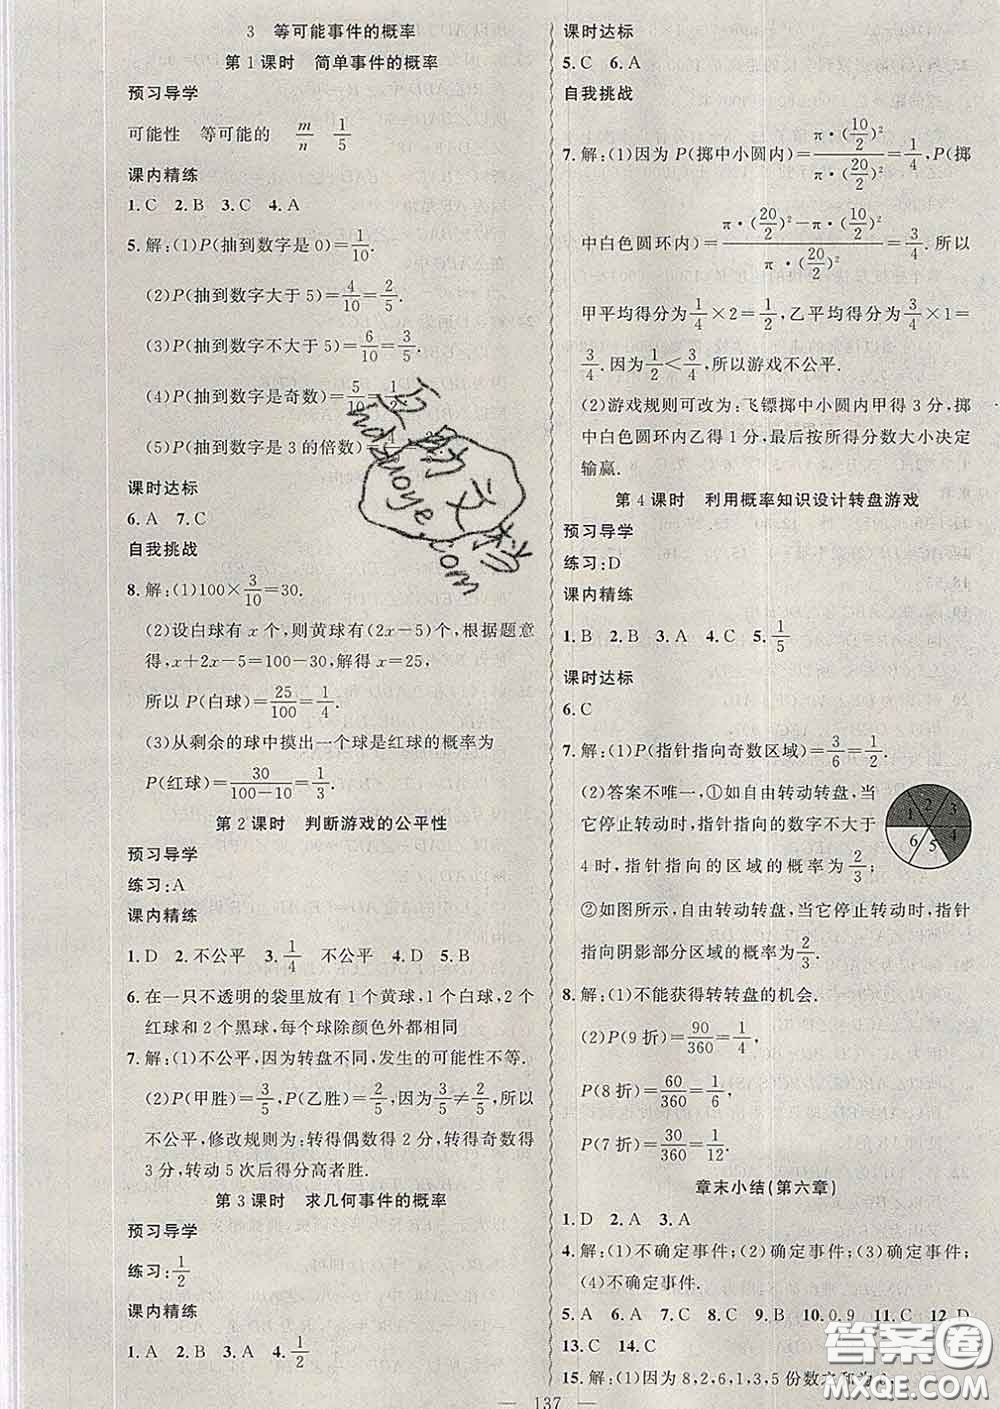 3 等可能事件的概率
第1课时 简单事件的概率
预习导学
可能性 等可能的 m/n 1/5
课内精练
1.C 2.B 3.C 4.A
5.解:(1)P(抽到数字是0)=1/10.
(2)P(抽到数字大于5)=4/10=2/5.
(3)P(抽到数字不大于5)=6/10=3/5.
(4)P(抽到数字是奇数)=5/10=1/2.
(5)P(抽到数字是3的倍数)=
课时达标
6.A 7.C
自我挑战
8.解:(1)100×3/10=30.
(2)设白球有x个,则黄球有(2x-5)个,根据题意
得,x+2x-5=100-30,解得x=25,
所以P(白球)=25/100=1/4.
(3)从剩余的球中摸出一个球是红球的概率为
P(红球)=30/(100-10)=1/3.
第2课时 判断游戏的公平性
预习导学
练习:A
课内精练
1.D 2.不公平 3.1/4 不公平 4.D 5.D
6.在一只不透明的袋里放有1个黄球,1个白球,2个
红球和2个黑球,每个球除颜色外都相同
7.解:(1)不公平,因为转盘不同,发生的可能性不等.
(2)P(甲胜)=3/5,P(乙胜)=2/5,因为3/5≠2/5,所以
不公平,修改规则为:转得偶数得2分,转得奇数得
3分,转动5次后得分高者胜.
第3课时 求几何事件的概率
预习导学
练习:1/2
课内精练
1.A 2.B 3.A 4.1/2
课时达标
5.C 6.A
自我挑战
7.解:(1)因为P(掷中小圆内)=π·(10/2)²/π·(20/2)²=1/4,P(掷
中白色圆环内)=π·(20/2)²-π·(10/2)²/π·(20/2)²=3/4.所以
甲平均得分为1/4×2=1/2,乙平均得分为3/4×1=
3/4.因为1/2<3/4,所以游戏不公平.
(2)游戏规则可改为:飞镖掷中小圆内甲得3分,掷
中白色圆环内乙得1分,最后按所得分数大小决定
输赢.
第4课时 利用概率知识设计转盘游戏
预习导学
练习:D
课内精练
1.B 2.B 3.A 4.C 5.1/5
课时达标
6.C
7.解:(1)P(指针指向奇数区域)=3/6=1/2.
(2)答案不唯一,①如自由转动转盘,当
它停止转动时,指针指向的数字不大于
4时,指针指向的区域的概率为2/3;
②如图所示,自由转动转盘,当它停止转动时,指针
指向阴影部分区域的概率为2/3.
1 2 3
6 5 4
8.解:(1)不能获得转转盘的机会.
(2)P(9折)=90/360=1/4,
P(8折)=60/360=1/6,
P(7折)=30/360=1/12.
章末小结(第六章)
1.D 2.A 3.A
4.解:(1)不确定事件;(2)确定事件;(3)确定事件;
(4)不确定事件.
5.A 6.A 7.C 8.B 9.B 10.0.9 11.C 12.D
13.C 14.C
15.解:(1)因为8,2,6,1,3,5份数之和为
137
答案圈
MXQE.COM